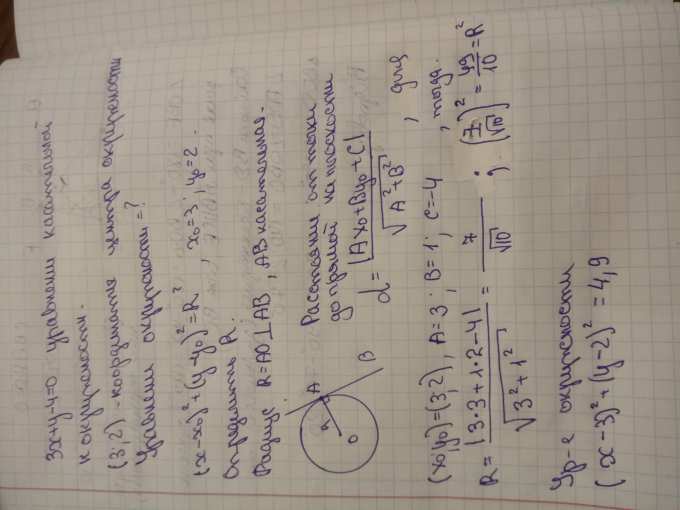 3x+y-4=0 уравнение касательной
к окружности.
(3,2) - координаты центра окружности
Уравнение окружности=?
(x-x₀)²+(y-y₀)²=R², x₀=3; y₀=2.
Определить R.
Радиус R=AO⊥AB, AB касательная.
A B R O
Расстояние от точки
до прямой на плоскости
d = |Ax₀+By₀+C| / √(A²+B²), для
(x₀,y₀)=(3,2), A=3; B=1; C=-4, тогда.
R = |3·3+1·2-4| / √(3²+1²) = 7/√10; (7/√10)² = 49/10 = R²
Ур-е окружности
(x-3)²+(y-2)²=4,9